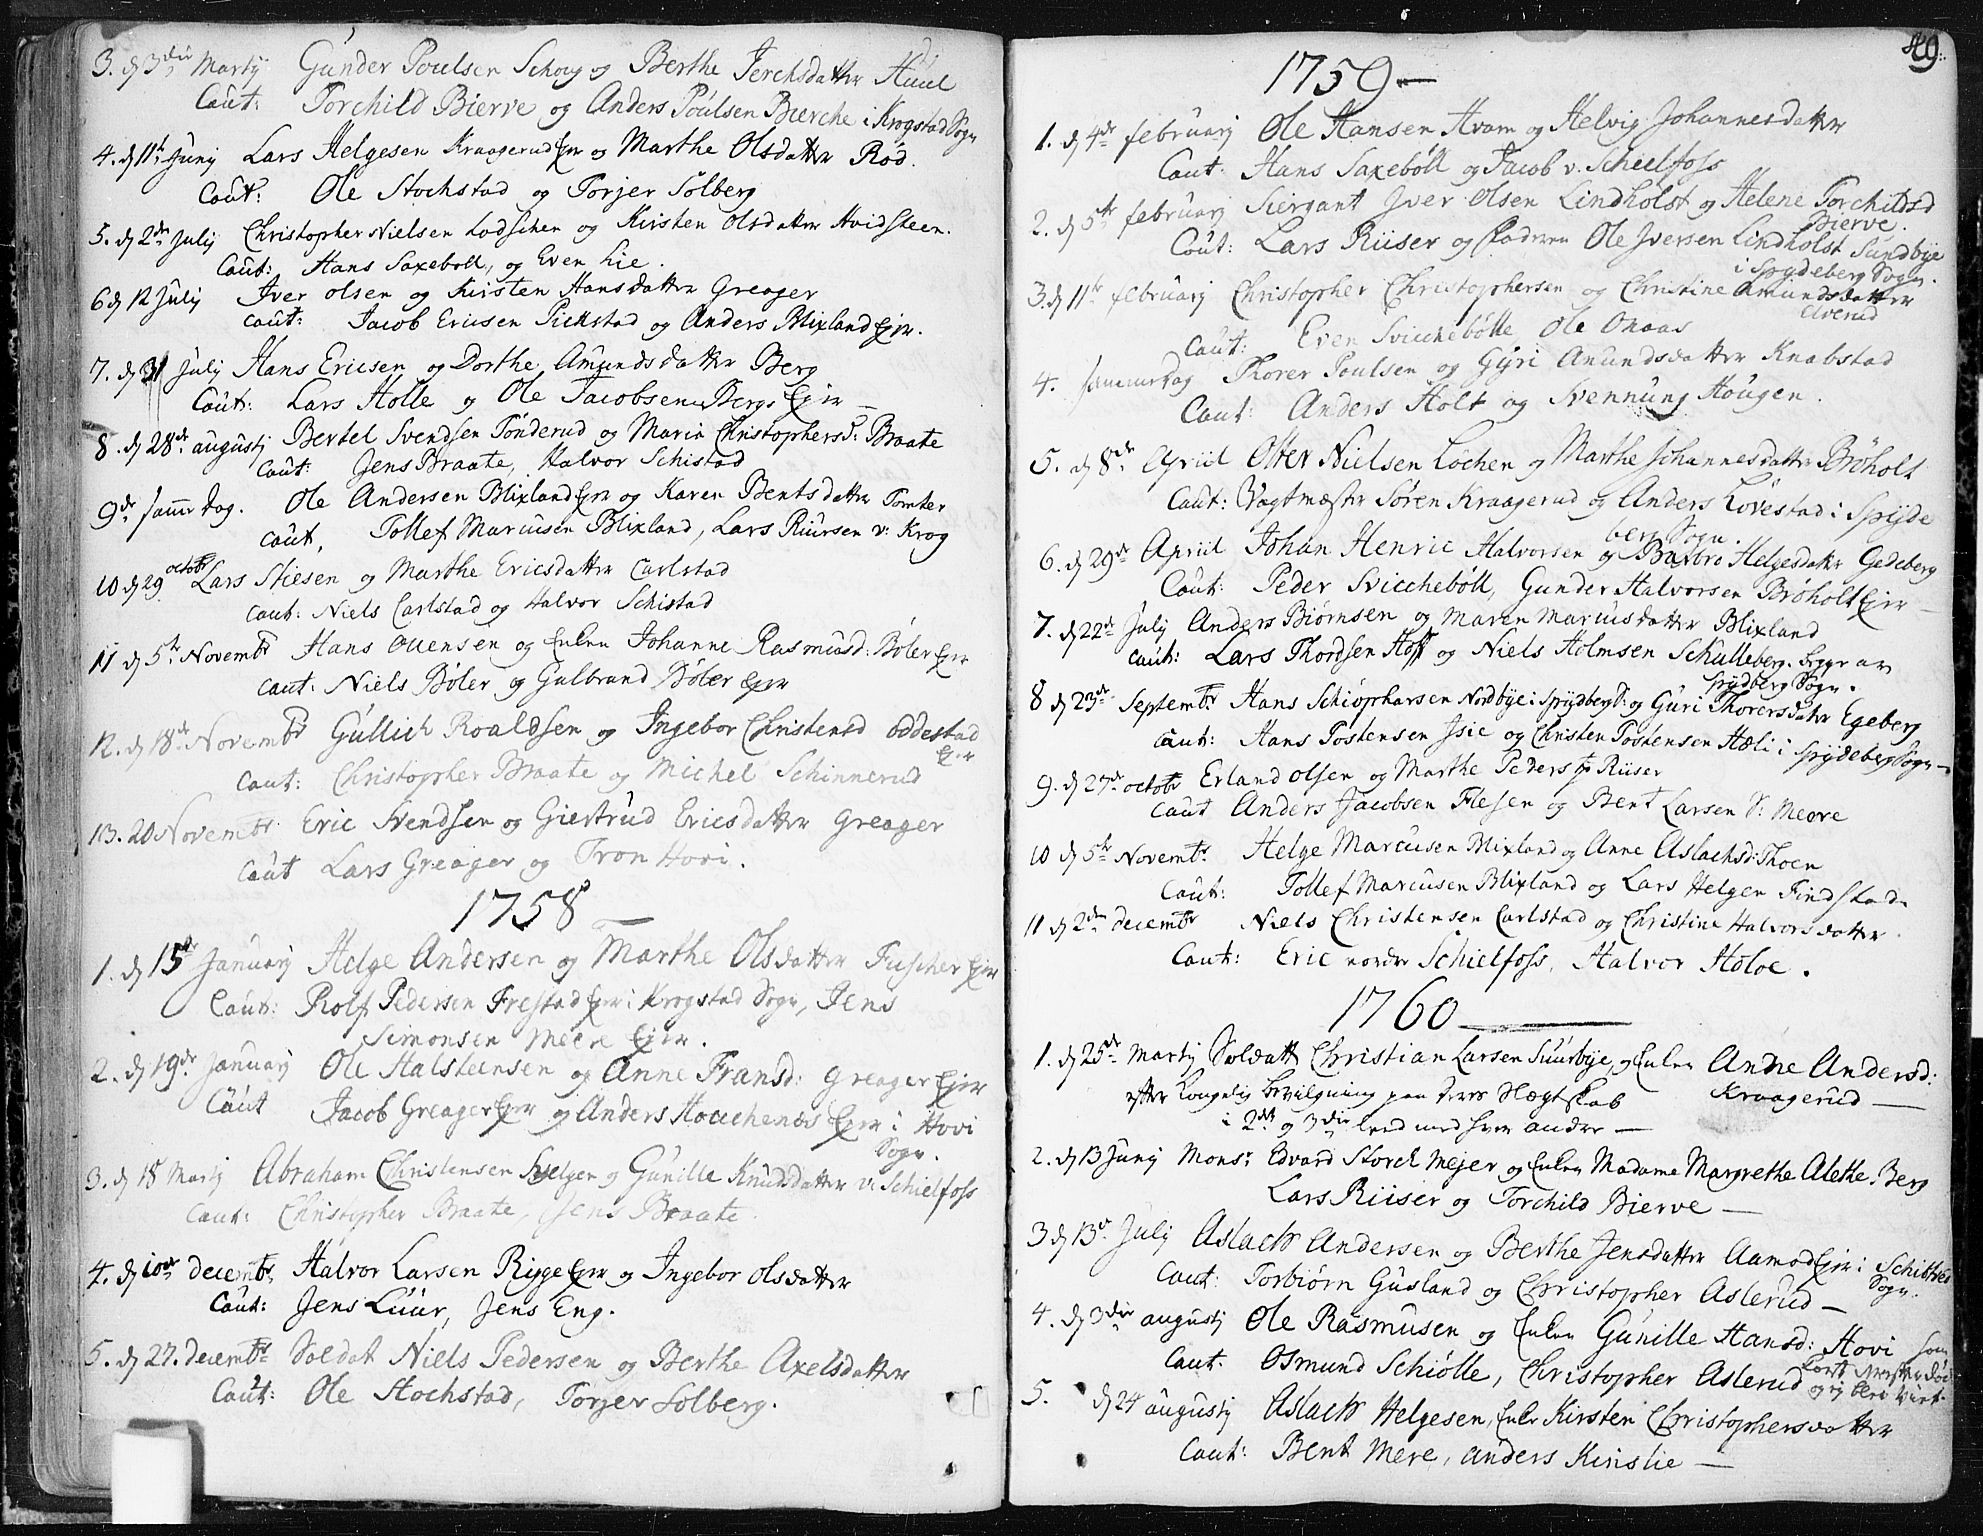 3. d 3die Martij Gunder Poulsen Schou og Berthe Jerchsdatter Huul
Caut: Torchild Bierve og Anders Poulsen Bierche i Krogstad Sogn
4. d 11te Junij Lars Helgesen Kraagerud Ejer og Marthe Olsdatter Rød.
Caut: Ole Stochstad og Torjer Solberg
5. d 2den Julij Christopher Nielsen Lodschen og Kirsten Olsdatter Hvidsteen.
Caut: Hans Saxeboll, og Even Lie.
6 d 12 Julij Iver Olsen og Kirsten Hansdatter Greager
Caut: Jacob Ericsen Sichstad og Anders Blixland Ejer.
7. d 31 Julij Hans Ericsen og Dorthe Amundsdatter Berg
Caut: Lars Holle og Ole Jacobsen Bergs Ejer —
8. d 28de augustj Bertel Svendsen Tønderud og Maria Christophersd: Braate
Caut: Jens Braate, Halvor Schistad
9de samme dag. Ole Andersen Blixland Ejer og Karen Bentsdatter Tomter
Caut, Tollef Marcusen Blixland, Lars Ruursen v: Krog
10 d 29 octobr Lars Stiesen og Marthe Ericsdatter Carlstad
Caut: Niels Carlstad og Halvor Schistad
11 d 5te Novembr Hans Ouensen og Enken Johanne Rasmusd: Bøler Ejer
Caut: Niels Bøler og Gulbrand Bøler Ejer
12. d 18de Novembr Gullich Roaldsen og Ingebor Christensd Oddestad
Ejer
Caut: Christopher Braate og Michel Schinnerud
13. 20 Novembr Eric Svendsen og Giertrud Ericsdatter Greager
Caut Lars Greager og Tron Hovi.
1758 —
1. d 15de Januarij Helge Andersen og Marthe Olsdatter Fuscher Ejer
Caut: Rolf Pedersen Frestad Ejer i Krogstad Sogn, Jens
Simonsen Meere Ejer.
2. d 19de Januarij Ole Halsteensen og Anne Fransd: Greager Ejer
Caut Jacob Greager Ejer og Anders Houchenæs Ejer i Hovi
Sogn.
3. d 18 Martij Abraham Christensen Svelgen og Gunille Knudsdatter v. Schielfoss
Caut: Christopher Braate, Jens Braate.
4. d 10de decembr. Halvor Larsen Rigge Ejer og Ingebor Olsdatter
Caut: Jens Luur, Jens Eng.
5. d 27. decembr Soldat Niels Pedersen og Berthe Axelsdatter
Caut: Ole Stochstad, Torjer Solberg.
49.
1759 —
1. d 4de februarij Ole Hansen Hvam og Helvig Johannesdatter
Caut: Hans Saxeböll og Jacob v. Schielfoss
2. d 5te februarij Siersant Iver Olsen Lindholst og Helene Torchildsd
Bierve.
Caut: Lars Riiser og Faderen Ole Iversen Lindholst Sundbye
i Spydeberg Sogn.
3. d 11te februarij Christopher Christophersen og Christine Amundsdatter
Elverud
Caut: Even Svicchebölle, Ole Onaas
4. samme dag Thorer Poulsen og Gÿri Anundsdatter Knabstad
Caut: Anders Holt og Svennung Hougen.
5. d 8de Apriil Oster Nielsen Löchen og Marthe Johannesdatter Bröholt
Caut: Vagtmæster Søren Kraagerud og Anders Lövestad i Spyde
berg Sogn.
6. d 29de Apriil Johan Henric Halvorsen og Barbro Helgesdatter Gedeberg
Caut: Peder Svicchebøll, Gunder Halvorsen Brøholt Ejer —
7. d 22de Julij Anders Biørnsen og Maren Marcusdatter Blixland
Caut: Lars Thordsen Hoff og Niels Holmsen Schulleberg. begge av
Spydberg Sogn.
8 d 23de Septembr Hans Schiøpharsen Nordbye i Spydbergd: og Guri Thorersdatter Egeberg
Caut: Hans Tostensen Isie og Christen Tostensen Hæli i Spydeberg Sogn —
9. d 27de octobr Erland Olsen og Marthe Peders Riiser
Caut Anders Jacobsen Flesen og Bent Larsen S: Meere
10 d 5te Novembr. Helge Marcusen Blixland og Anne Aslachsd: Thoen
Caut: Tollef Marcusen Blixland og Lars Helgen Findstad.
11 d 2den decembr Niels Christensen Carlstad og Christine Halvorsdatter.
Caut: Eric nordre Schielfoss, Halvor Holoe.
1760
1. d 25de Martij Soldatt Christian Larsen Suurbye, og Enken Andre Andersd:
efter Kongelig bevilgning paa deres Slægtskab Kraagerud —
i 2det og 3die leed med hver andre —
2. d 13 Junij Monsr Edvard Storch Mejer og Enken Madame Margrethe Alethe Berg
Lars Riiser og Torchild Bierve —
3 d 13de Julij Aslach Andersen og Berthe Jensdatter Aamod Ejer i Schibtved
Sogn.
Caut: Torbiörn Gusland og Christopher Aslerud —
4. d 3die augustj Ole Rasmusen og Enken Gunille Hansd: Hovi som
kort derefter døde
Caut: Osmund Schiölle, Christopher Aslerud og ej blev viet.
5. d 24 augustij Aslach Helgesen, Enke Kirsten Christophersdatter
Caut: Bent Mere, Anders Kinslie —